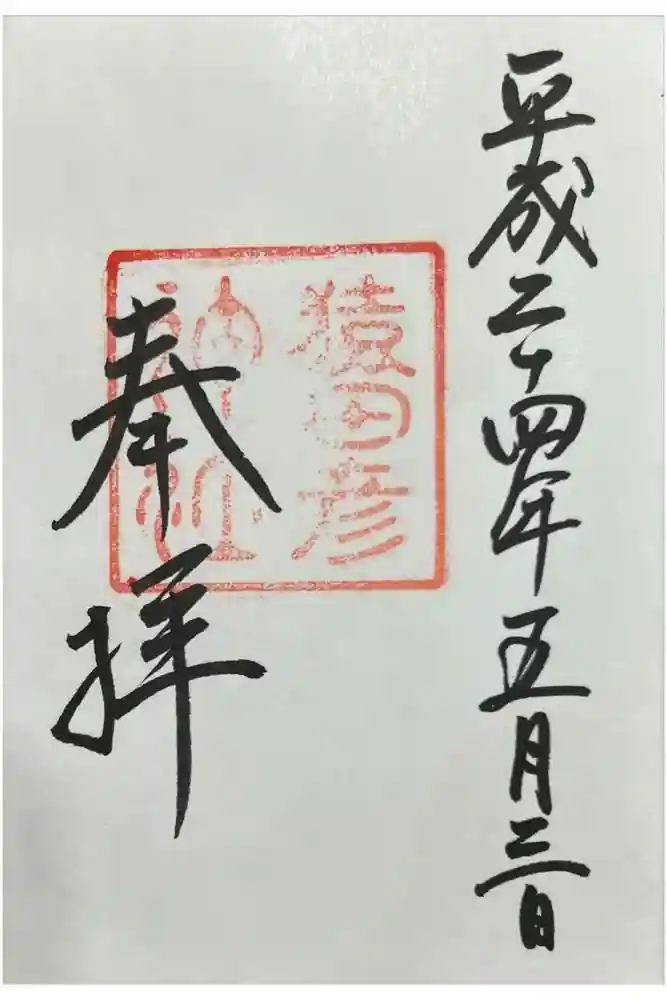 平成二十四年五月三日
猿田彦
神社
奉拝